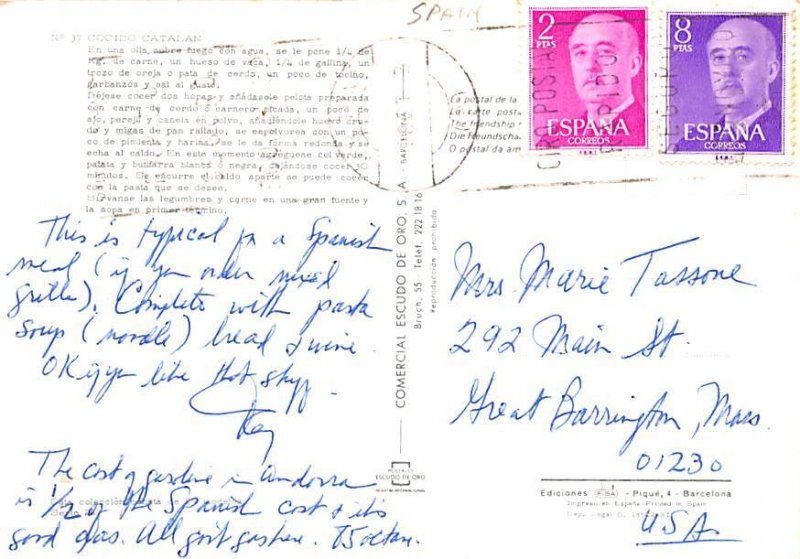 SPAIN
Nº 37 COCIDO CATALAN
En una olla sobre fuego con agua, se le pone 1/4 de
Kg. de carne, un hueso de vaca, 1/4 de gallina, un
trozo de oreja o pata de cerdo, un poco de tocino,
garbanzos y sal al gusto.
Déjese cocer dos horas y añádasele pelota preparada
con carne de cerdo ó carnero picada, un poco de
ajo, perejil y canela en polvo, añadiéndole huevo cru-
do y migas de pan rallado, se espolvorea con un po-
co de pimienta y harina, se le da forma redonda y se
echa al caldo. En este momento agréguese col verde,
patata y butifarra blanca ó negra, dejándose cocer
minutos. Se escurre el caldo aparte se puede cocer
con la pasta que se desee.
Sírvanse las legumbres y carne en una gran fuente y
la sopa en primer término.
This is typical for a Spanish
meal (if you order mixed
grille). Complete with pasta
soup (noodle) bread & wine.
OK if you like that stuff.
Ray
The cost of gasoline in Andorra
is 1/2 of the Spanish cost & it's
good gas. All gov't gas here. 85 octane.
COMERCIAL ESCUDO DE ORO, S. A. - BARCELONA
Bruch, 55 Teléf. 222 18 16
Reproducción prohibida
POSTALES
ESCUDO DE ORO
La postal de la
La carte post
The friendship
Die Freundscha
O postal da am
2
PTAS
ESPAÑA
CORREOS
F.N.M.T.
8
PTAS
ESPAÑA
CORREOS
F.N.M.T.
Mrs Marie Tassone
292 Main St.
Great Barrington, Mass.
01230
Ediciones FISA - Piqué, 4 - Barcelona
Impreso en España-Printed in Spain
Dep. Legal B.
USA